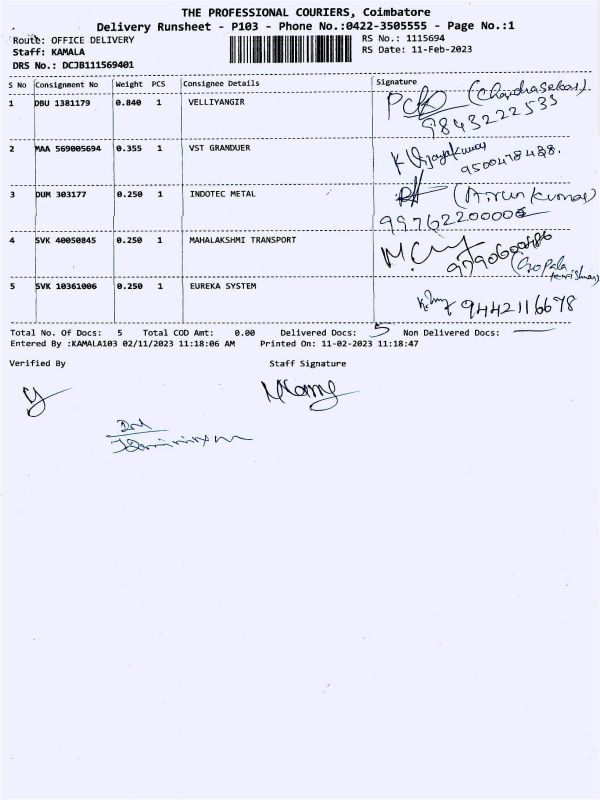 THE PROFESSIONAL COURIERS, Coimbatore
Delivery Runsheet - P103 - Phone No.:0422-3505555 - Page No.:1
Route: OFFICE DELIVERY
RS No.: 1115694
Staff: KAMALA
RS Date: 11-Feb-2023
DRS No.: DCJB111569401
S No Consignment No Weight PCS Consignee Details Signature
1 DBU 1381179 0.840 1 VELLIYANGIR (Chandrasekar)
9843222533
2 MAA 569005694 0.355 1 VST GRANDUER K Vijayakumar
9500478488.
3 DUM 303177 0.250 1 INDOTEC METAL (Arun Kumar)
4 SVK 40050845 0.250 1 MAHALAKSHMI TRANSPORT
(Gopala krishnan)
5 SVK 10361006 0.250 1 EUREKA SYSTEM
9442116678
Total No. Of Docs: 5 Total COD Amt: 0.00 Delivered Docs: 5 Non Delivered Docs:
Entered By :KAMALA103 02/11/2023 11:18:06 AM Printed On: 11-02-2023 11:18:47
Verified By Staff Signature